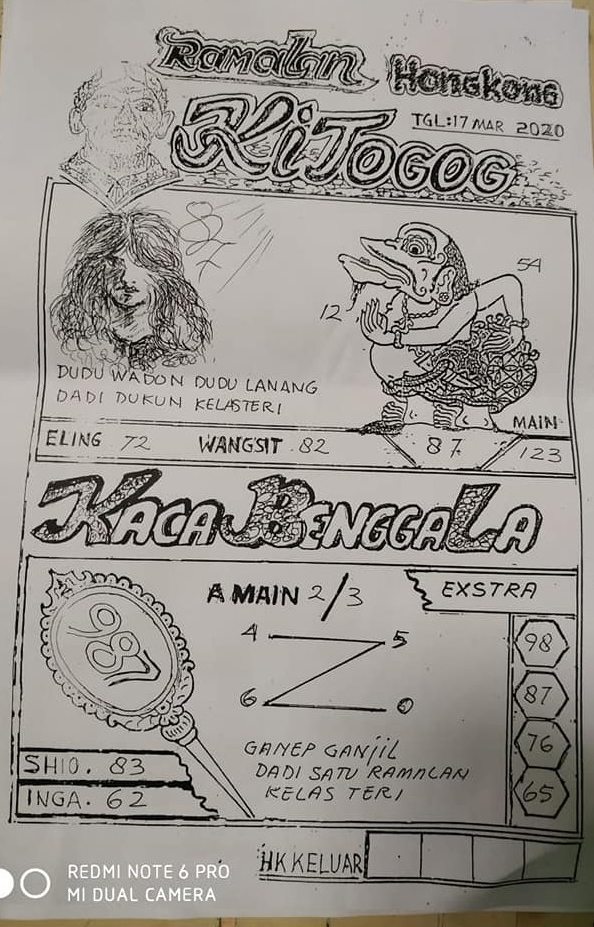 Ramalan Hongkong
Ki Togog
TGL:17 MAR 2020
54
12
DUDU WADON DUDU LANANG
DADI DUKUN KELASTERI
MAIN
ELING 72 WANGSIT.82 87. 123
KACA BENGGALA
A MAIN 2/3
EXSTRA
4 5
6
98
87
76
65
GANEP GANJIL
DADI SATU RAMALAN
KELAS TERI
SHIO. 83
INGA. 62
HK KELUAR
REDMI NOTE 6 PRO
MI DUAL CAMERA